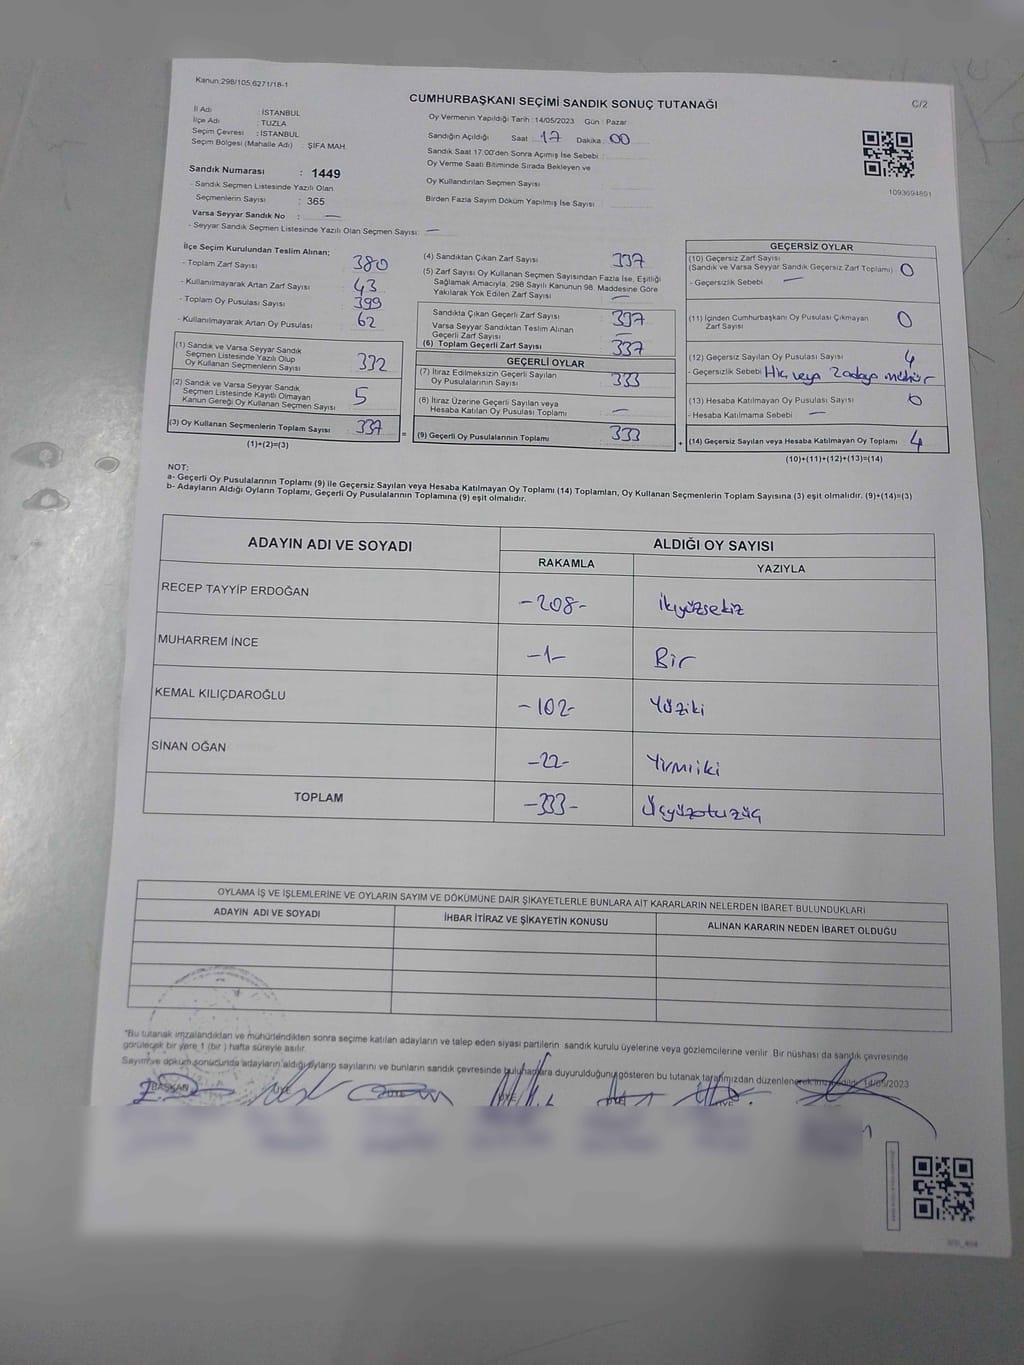 Kanun:298/105,6271/18-1
CUMHURBAŞKANI SEÇİMİ SANDIK SONUÇ TUTANAĞI
C/2
İl Adı : İSTANBUL
İlçe Adı : TUZLA
Seçim Çevresi : İSTANBUL
Seçim Bölgesi (Mahalle Adı) : ŞİFA MAH.
Oy Vermenin Yapıldığı Tarih :14/05/2023 Gün : Pazar
Sandığın Açıldığı Saat : 17 Dakika : 00
Sandık Saat 17:00'den Sonra Açımış İse Sebebi :
Oy Verme Saati Bitiminde Sırada Bekleyen ve
Oy Kullandırılan Seçmen Sayısı
Birden Fazla Sayım Döküm Yapılmış İse Sayısı
1093694691
Sandık Numarası : 1449
- Sandık Seçmen Listesinde Yazılı Olan
Seçmenlerin Sayısı : 365
Varsa Seyyar Sandık No : —
- Seyyar Sandık Seçmen Listesinde Yazılı Olan Seçmen Sayısı: —
İlçe Seçim Kurulundan Teslim Alınan;
- Toplam Zarf Sayısı : 380
- Kullanılmayarak Artan Zarf Sayısı : 43
- Toplam Oy Pusulası Sayısı : 399
- Kullanılmayarak Artan Oy Pusulası : 62
(1) Sandık ve Varsa Seyyar Sandık
Seçmen Listesinde Yazılı Olup
Oy Kullanan Seçmenlerin Sayısı : 332
(2) Sandık ve Varsa Seyyar Sandık
Seçmen Listesinde Kayıtlı Olmayan
Kanun Gereği Oy Kullanan Seçmen Sayısı : 5
(3) Oy Kullanan Seçmenlerin Toplam Sayısı : 337
(1)+(2)=(3)
(4) Sandıktan Çıkan Zarf Sayısı : 337
(5) Zarf Sayısı Oy Kullanan Seçmen Sayısından Fazla İse, Eşitliği
Sağlamak Amacıyla, 298 Sayılı Kanunun 98. Maddesine Göre
Yakılarak Yok Edilen Zarf Sayısı : —
Sandıkta Çıkan Geçerli Zarf Sayısı : 337
Varsa Seyyar Sandıktan Teslim Alınan
Geçerli Zarf Sayısı : —
(6) Toplam Geçerli Zarf Sayısı : 337
GEÇERLİ OYLAR
(7) İtiraz Edilmeksizin Geçerli Sayılan
Oy Pusulalarının Sayısı : 333
(8) İtiraz Üzerine Geçerli Sayılan veya
Hesaba Katılan Oy Pusulası Toplamı : —
= (9) Geçerli Oy Pusulalarının Toplamı : 333
GEÇERSİZ OYLAR
(10) Geçersiz Zarf Sayısı
(Sandık ve Varsa Seyyar Sandık Geçersiz Zarf Toplamı) : 0
- Geçersizlik Sebebi : —
(11) İçinden Cumhurbaşkanı Oy Pusulası Çıkmayan
Zarf Sayısı : 0
(12) Geçersiz Sayılan Oy Pusulası Sayısı : 4
- Geçersizlik Sebebi : Hiç veya 2 adaya mühür
(13) Hesaba Katılmayan Oy Pusulası Sayısı : 0
- Hesaba Katılmama Sebebi : —
+ (14) Geçersiz Sayılan veya Hesaba Katılmayan Oy Toplamı : 4
(10)+(11)+(12)+(13)=(14)
NOT:
a- Geçerli Oy Pusulalarının Toplamı (9) ile Geçersiz Sayılan veya Hesaba Katılmayan Oy Toplamı (14) Toplamları, Oy Kullanan Seçmenlerin Toplam Sayısına (3) eşit olmalıdır. (9)+(14)=(3)
b- Adayların Aldığı Oyların Toplamı, Geçerli Oy Pusulalarının Toplamına (9) eşit olmalıdır.
ADAYIN ADI VE SOYADI
ALDIĞI OY SAYISI
RAKAMLA YAZIYLA
RECEP TAYYİP ERDOĞAN -208- İkiyüzsekiz
MUHARREM İNCE -1- Bir
KEMAL KILIÇDAROĞLU -102- Yüziki
SİNAN OĞAN -22- Yirmiiki
TOPLAM -333- Üçyüzotuzüç
OYLAMA İŞ VE İŞLEMLERİNE VE OYLARIN SAYIM VE DÖKÜMÜNE DAİR ŞİKAYETLERLE BUNLARA AİT KARARLARIN NELERDEN İBARET BULUNDUKLARI
ADAYIN ADI VE SOYADI İHBAR İTİRAZ VE ŞİKAYETİN KONUSU ALINAN KARARIN NEDEN İBARET OLDUĞU
*Bu tutanak imzalandıktan ve mühürlendikten sonra seçime katılan adayların ve talep eden siyasi partilerin sandık kurulu üyelerine veya gözlemcilerine verilir. Bir nüshası da sandık çevresinde
görülecek bir yere 1 (bir ) hafta süreyle asılır.
Sayım ve döküm sonucunda adayların aldığı oyların sayılarını ve bunların sandık çevresinde bulunanlara duyurulduğunu gösteren bu tutanak tarafımızdan düzenlenerek 14/05/2023
BAŞKAN ÜYE ÜYE ÜYE ÜYE